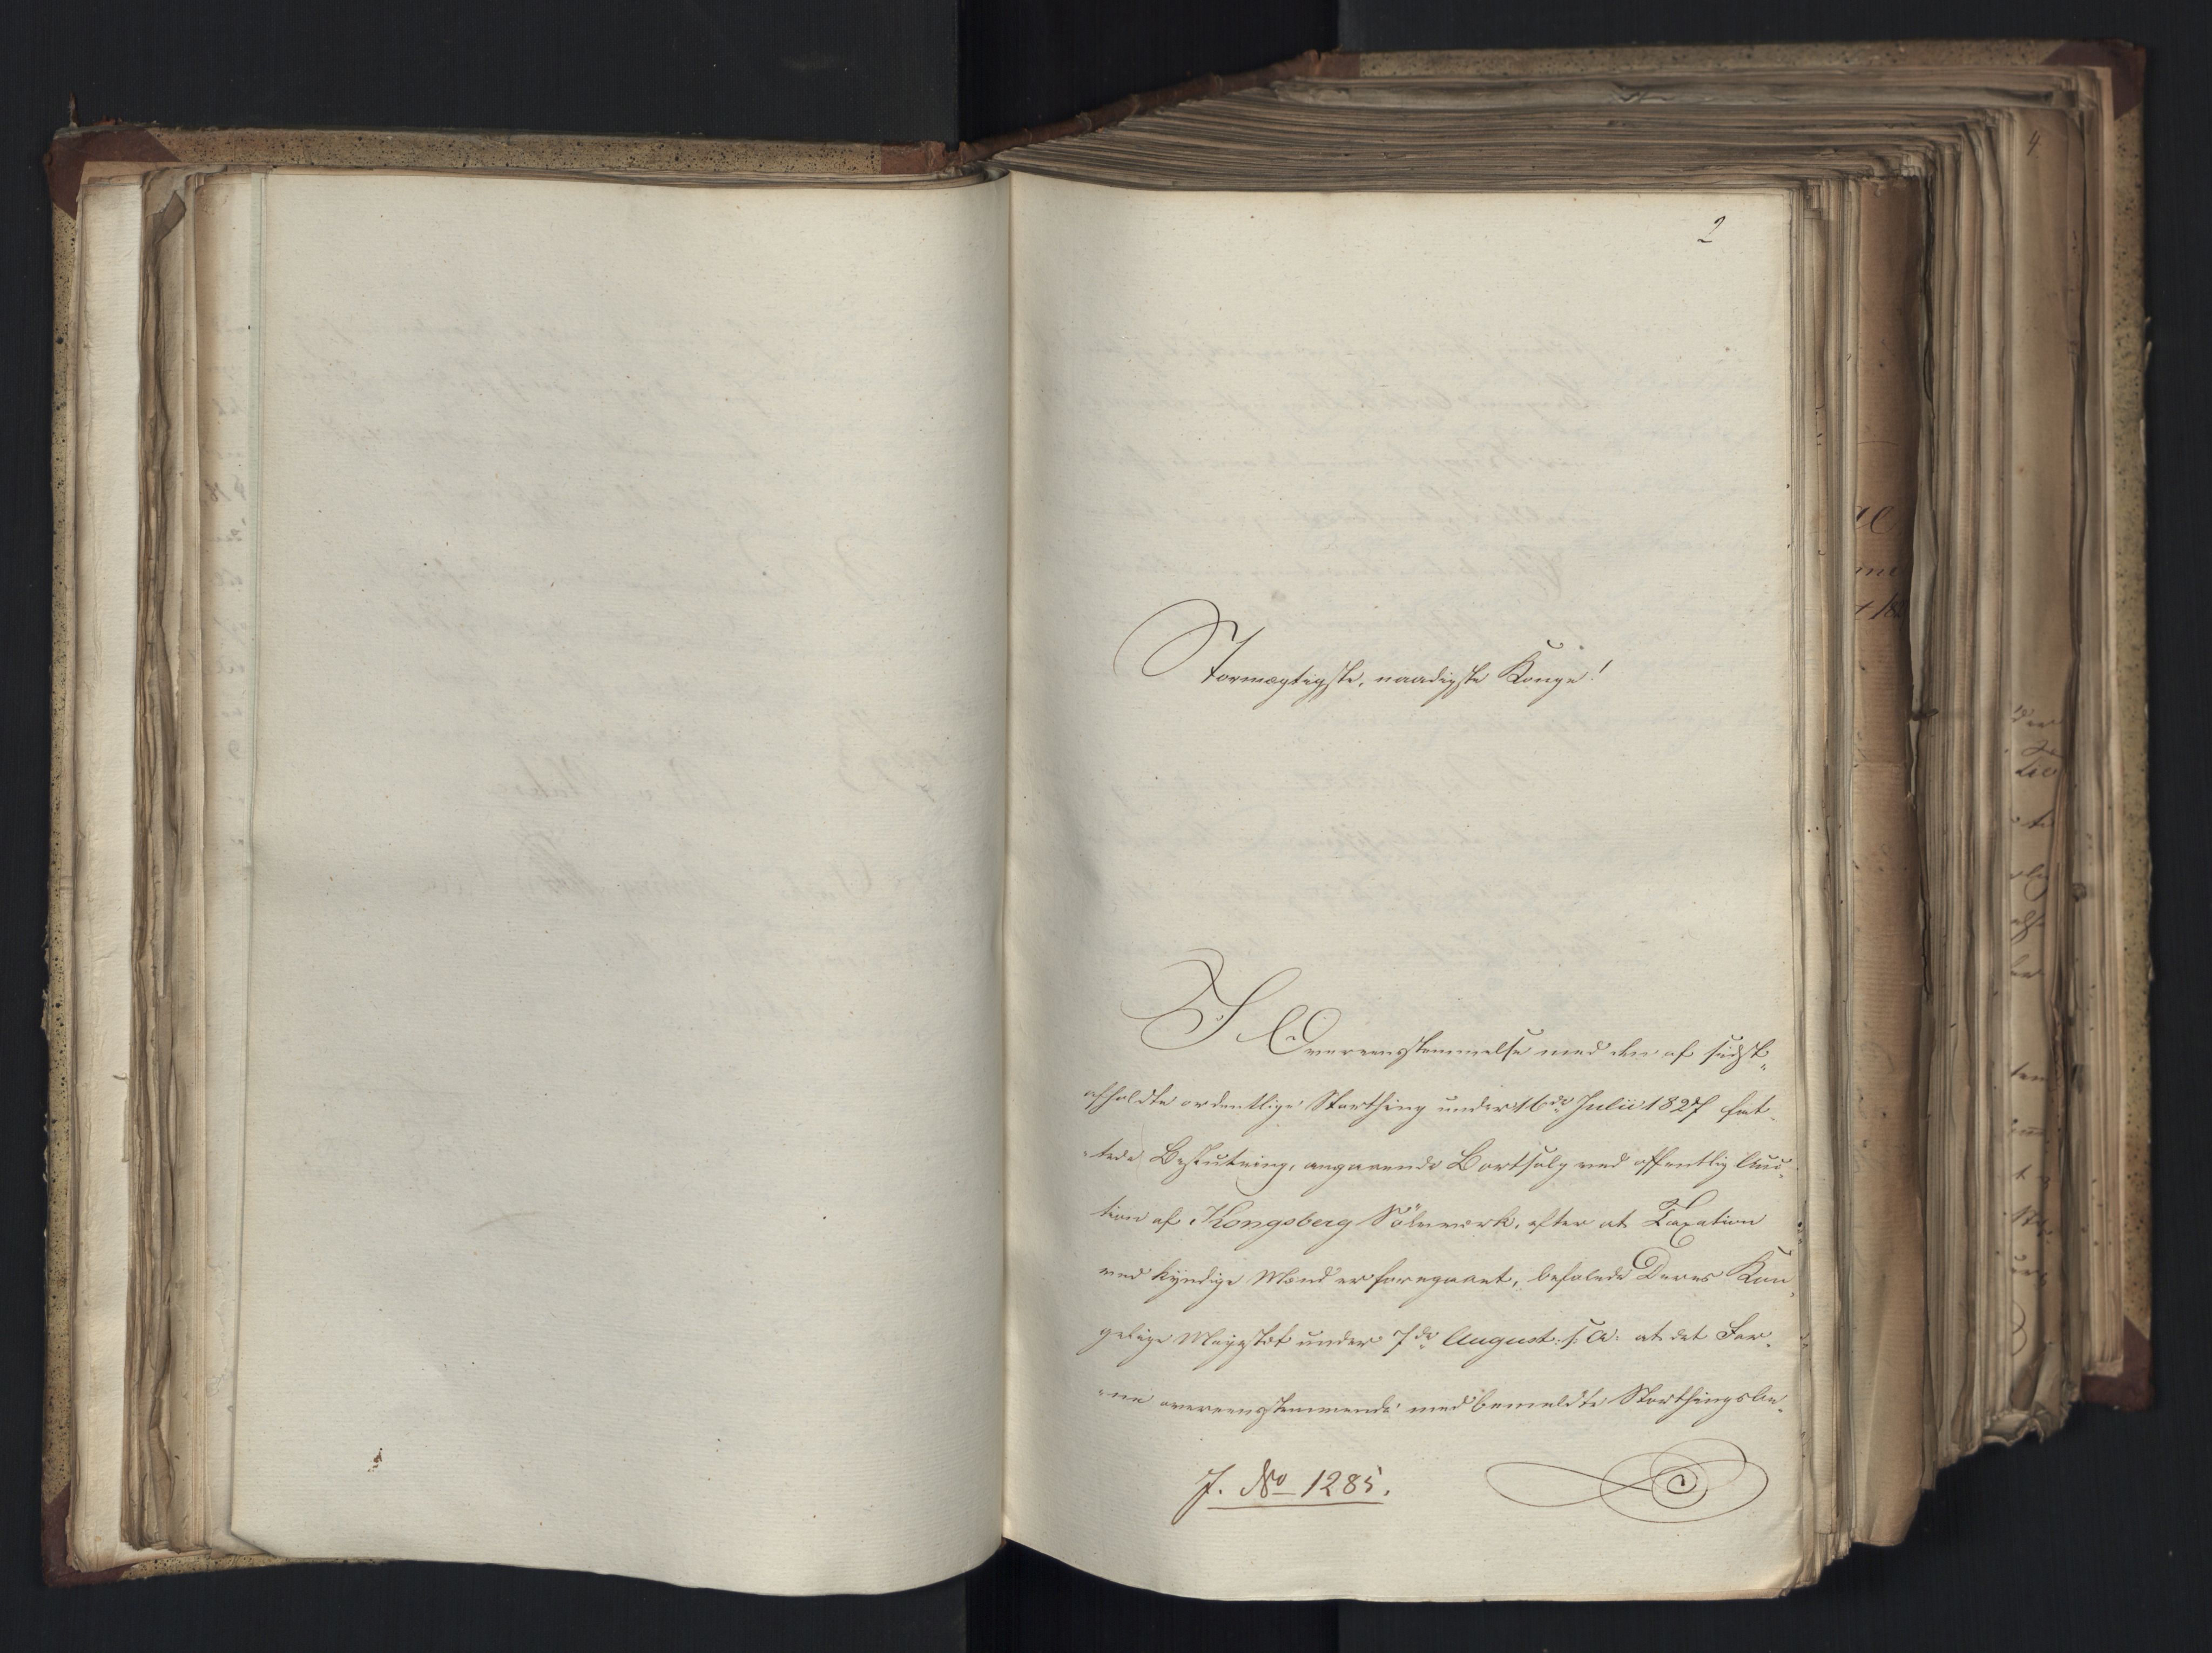 2
Stormægtigste, naadigste Konge!
I Overeensstemmelse med den af sidst-
afholdte ordentlige Storthing under 16de Julii 1827 fat-
tede Beslutning, angaaende Bortsalg ved offentlig Auc-
tion af Kongsberg Sölvværk, efter at Taxation
ved kyndige Mænd er foregaaet, befalede Deres Kon-
gelige Majestæt under 7de August s: A: at det For-
nne overeensstemmende med bemeldte Storthingsbe-
J. No 1285.